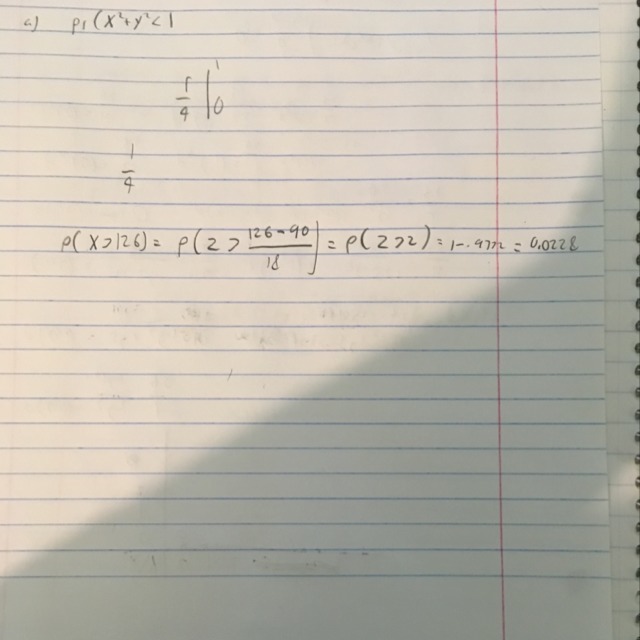 c) Pr(X²+y²<1
r/4 |¹₀
1/4
P(X>126) = P(Z > (126-90)/18) = P(Z>2) = 1-.9772 = 0.0228